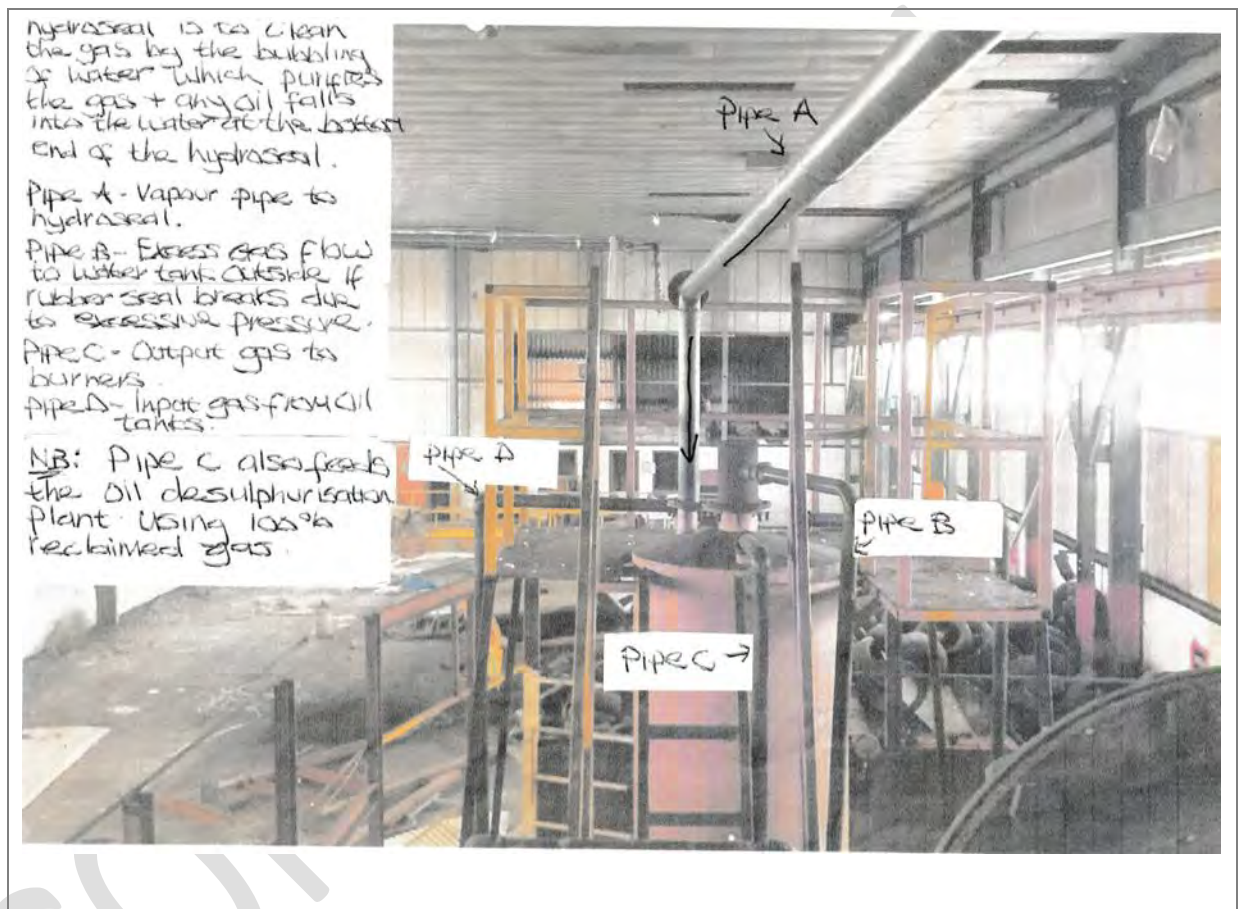 hydroseal is to clean
the gas by the bubbling
of water which purifies
the gas + any oil falls
into the water at the bottom
end of the hydroseal.
Pipe A - Vapour pipe to
hydroseal.
Pipe B - Excess gas flow
to water tank outside if
rubber seal breaks due
to excessive pressive.
Pipe C - Output gas to
burners.
pipe D - Input gas from Oil
tanks.
NB: Pipe C also feeds
the oil desulphurisation
Plant using 100%
reclaimed gas.
Pipe A
Pipe D
Pipe B
Pipe C